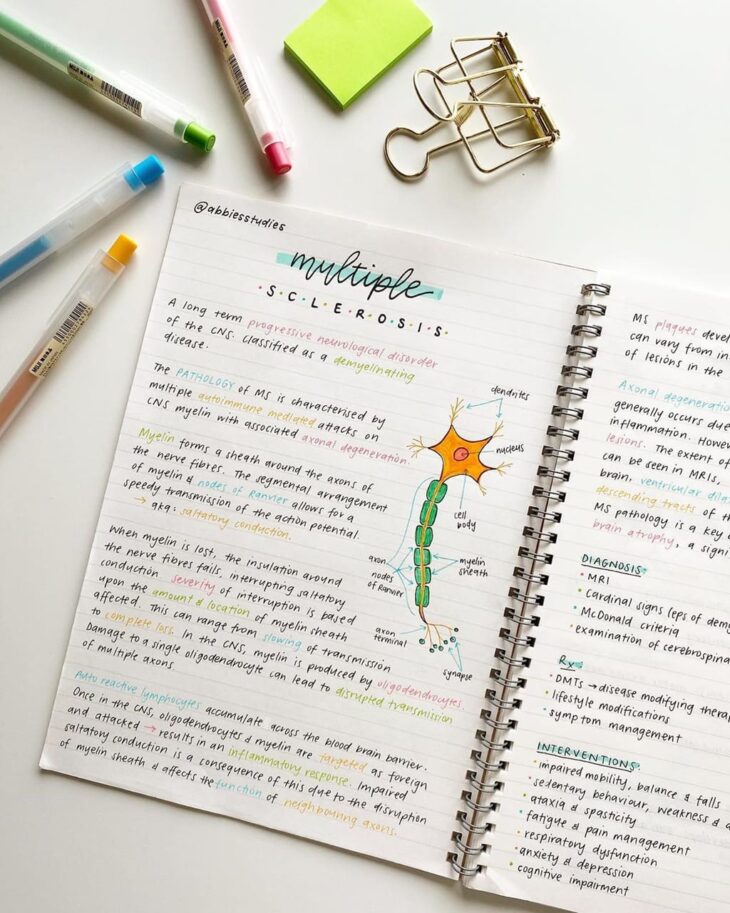 @abbiesstudies
multiple
S.C.L.E.R.O.S.I.S.
A long term progressive neurological disorder
of the CNS. Classified as a demyelinating
disease.
The PATHOLOGY of MS is characterised by
multiple autoimmune mediated attacks on
CNS myelin with associated axonal degeneration.
Myelin forms a sheath around the axons of
the nerve fibres. The segmental arrangement
of myelin & nodes of Ranvier allows for a
speedy transmission of the action potential.
→ aka: saltatory conduction.
When myelin is lost, the insulation around
the nerve fibres fails, interrupting saltatory
conduction. Severity of interruption is based
upon the amount & location of myelin sheath
affected. This can range from slowing of transmission
to complete loss. In the CNS, myelin is produced by oligodendrocytes.
Damage to a single oligodendrocyte can lead to disrupted transmission
of multiple axons.
Auto reactive lymphocytes accumulate across the blood brain barrier.
Once in the CNS, oligodendrocytes & myelin are targeted as foreign
and attacked → results in an inflammatory response. Impaired
saltatory conduction is a consequence of this due to the disruption
of myelin sheath & affects the function of neighbouring axons.
dendrites
nucleus
cell
body
axon
nodes
of Ranvier
myelin
sheath
axon
terminal
synapse
MS plaques deve
can vary from in
of lesions in the
Axonal degeneratio
generally occurs due
inflammation. Howev
lesions. The extent of
can be seen in MRIs,
brain, ventricular dila
descending tracts of th
MS pathology is a key c
brain atrophy, a signi
DIAGNOSIS:
• MRI
• Cardinal signs (eps of demy
• McDonald criteria
• examination of cerebrospina
Rx
• DMTs → disease modifying thera
• lifestyle modifications
• symptom management
INTERVENTIONS:
• impaired mobility, balance & falls
• sedentary behaviour, weakness & d
• ataxia & spasticity
• fatigue & pain management
• respiratory dysfunction
• anxiety & depression
• cognitive impairment